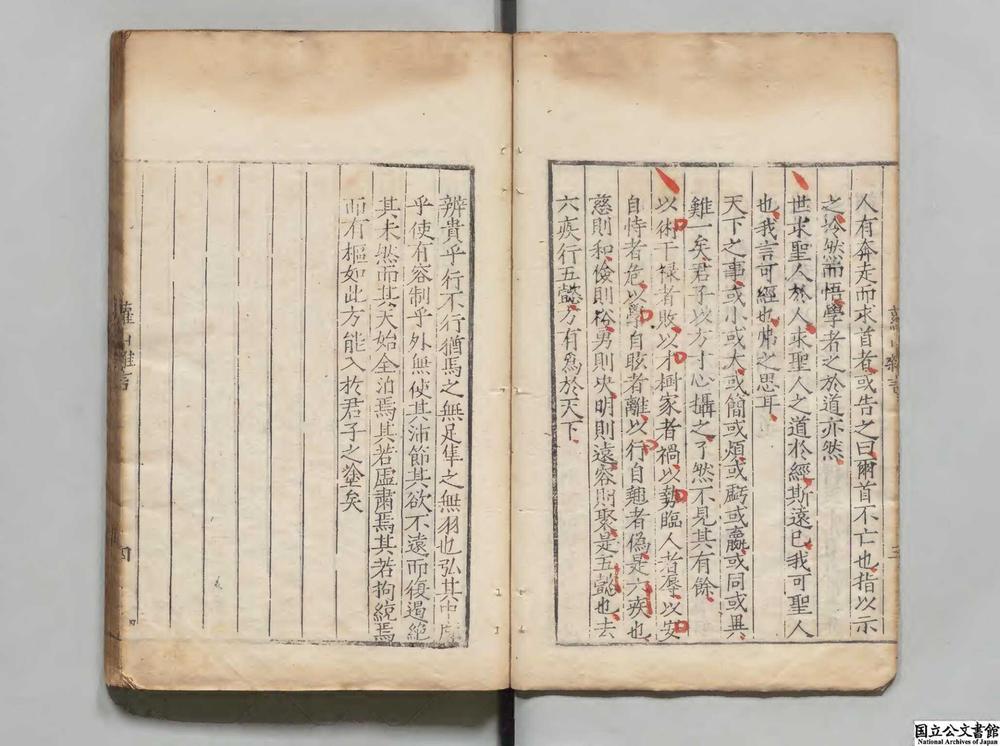 人有奔走而求首者或告之曰爾首不亡也指以示
之泠然而悟學者之於道亦然
世求聖人於人求聖人之道於經斯遠已我可聖人
也我言可經也弗之思耳
天下之事或小或大或簡或煩或虧或贏或同或異
難一矣君子以方寸心攝之了然不見其有餘
以術干祿者敗以才柄家者禍以勢臨人者辱以安
自恃者危以學自眩者離以行自翹者偽是六疾也
慈則和儉則裕勇則決明則遠容則聚是五懿也去
六疾行五懿方有為於天下
辨貴乎行不行猶馬之無足隼之無羽也弘其中
乎使有容制乎外無使其沛節其欲不遠而復遏絕
其未然而其天始全泊焉其若虛肅焉其若拘綂焉
而有樞如此方能入於君子之塗矣
蘿山雜言
三
蘿山雜言
四
国立公文書館
National Archives of Japan